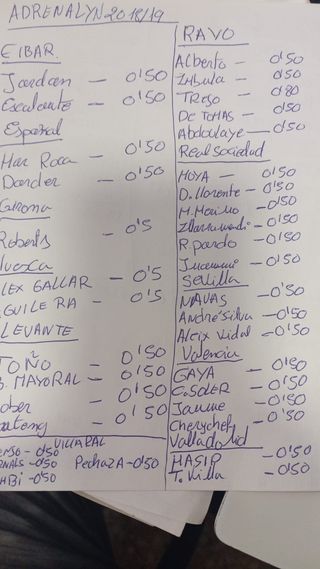 ADRENALYN 2018/19
EIBAR
Jordan - 0'50
Escalante - 0'50
Español
Mar Roca - 0'50
Darder - 0'50
Girona
Roberts - 0'5
Huesca
ALEX GALLAR - 0'5
AGUILERA - 0'5
LEVANTE
TOÑO - 0'50
B. MAYORAL - 0'50
- 0'50
- 0'50
VILLAREAL
- 0'50
- 0'50 PedrazA - 0'50
- 0'50
RAYO
Alberto - 0'50
Imbula - 0'50
TRejo - 0'80
DE TOMAS - 0'50
Abdoulaye - 0'50
Real Sociedad
MOYA - 0'50
D. llorente - 0'50
M. Merino - 0'50
Zubermendi - 0'50
R. pardo - 0'50
Juanmi - 0'50
Sevilla
NAVAS - 0'50
André Silva - 0'50
Aleix Vidal - 0'50
Valencia
GAYA - 0'50
C. SOLER - 0'50
Jaume - 0'50
Cheryshef - 0'50
Valladolid
MASIP - 0'50
T. Villa - 0'50